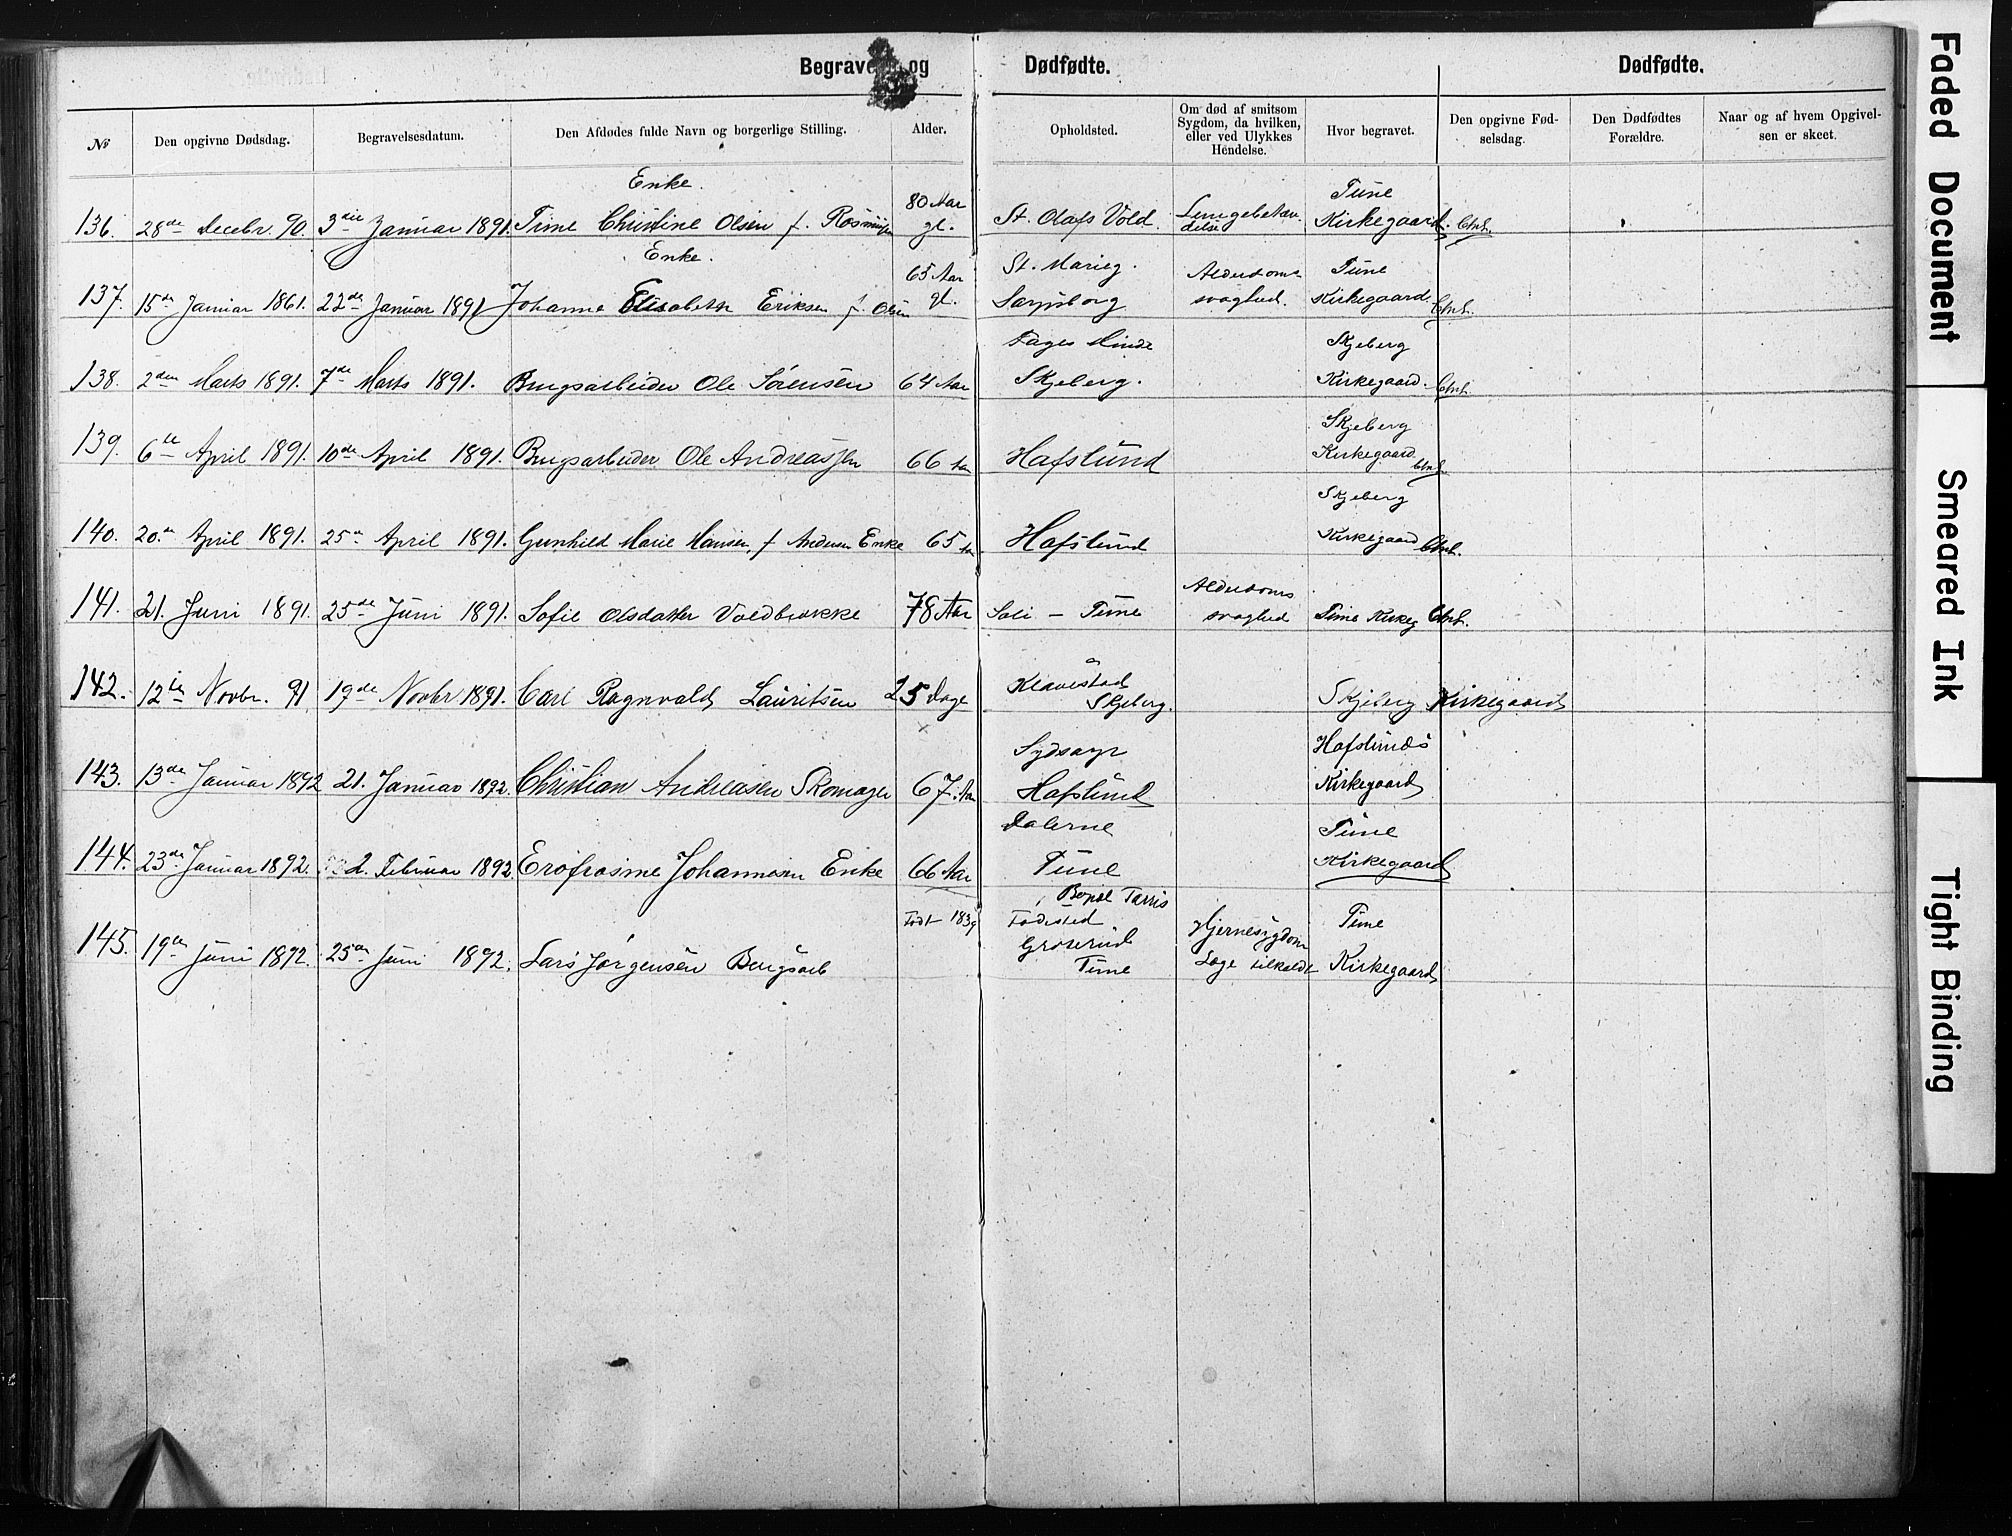 Begravede og Dødfødte. Dødfødte.
№ Den opgivne Dødsdag. Begravelsesdatum. Den Afdødes fulde Navn og borgerlige Stilling. Alder. Opholdsted. Om død af smitsom Sygdom, da hvilken, eller ved Ulykkes Hendelse. Hvor begravet. Den opgivne Fødselsdag. Den Dødfødtes Forældre. Naar og af hvem Opgivelsen er skeet.
Enke. 80 Aar Tune
136. 28de Decebr. 90. 3die Januar 1891. Trine Christine Olsen f. gl. St. Olafs Vold. Lungebetændelse Kirkegaard.
Enke. 65 Aar St. Marieg. Alderdoms Tune
137. 15de Januar 1861. 22de Januar 1891 Johanne Elisabeth Eriksen f. Olsen gl. Sarpsborg svaghed. Kirkegaard.
Hages Minde Skjeberg
138. 2den Marts 1891. 7de Marts 1891. Brugsarbeider Ole Sørensen 64 Aar Skjeberg. Kirkegaard.
Skjeberg
139. 6te April 1891. 10de April 1891. Brugsarbeider Ole Andreassen 66 Aar Hafslund Kirkegaard
Skjeberg
140. 20de April 1891. 25de April 1891. Gunhild Marie Hansen, f Andersen Enke 65 Aar Hafslund Kirkegaard
Alderdoms
141. 21. Juni 1891. 25de Juni 1891. Sofie Olsdatter Voldbrække 78 Aar Soli - Tune svaghed Tune Kirkeg
Klavestad
142. 12te Novbr. 91 19de Novbr 1891. Carl Ragnvald Lauritsen 25 Dage Skjeberg. Skjeberg Kirkegaard
Hafslunds
143. 13de Januar 1892 21. Januar 1892. Christian Andreasen Skomager 67. Aar Hafslund Kirkegaard
Dalerne Tune
144. 23de Januar 1892. 2. Februar 1892. Erofrosine Johannesen Enke 66 Aar Tune Kirkegaard
Bopæl Tarris
Født 1839 Fødested Hjernesygdom Tune
145. 19de Juni 1892. 25de Juni 1892. Lars Jørgensen Brugsarb Tune Læge tilkaldt Kirkegaard
Faded Document
Smeared Ink
Tight Binding